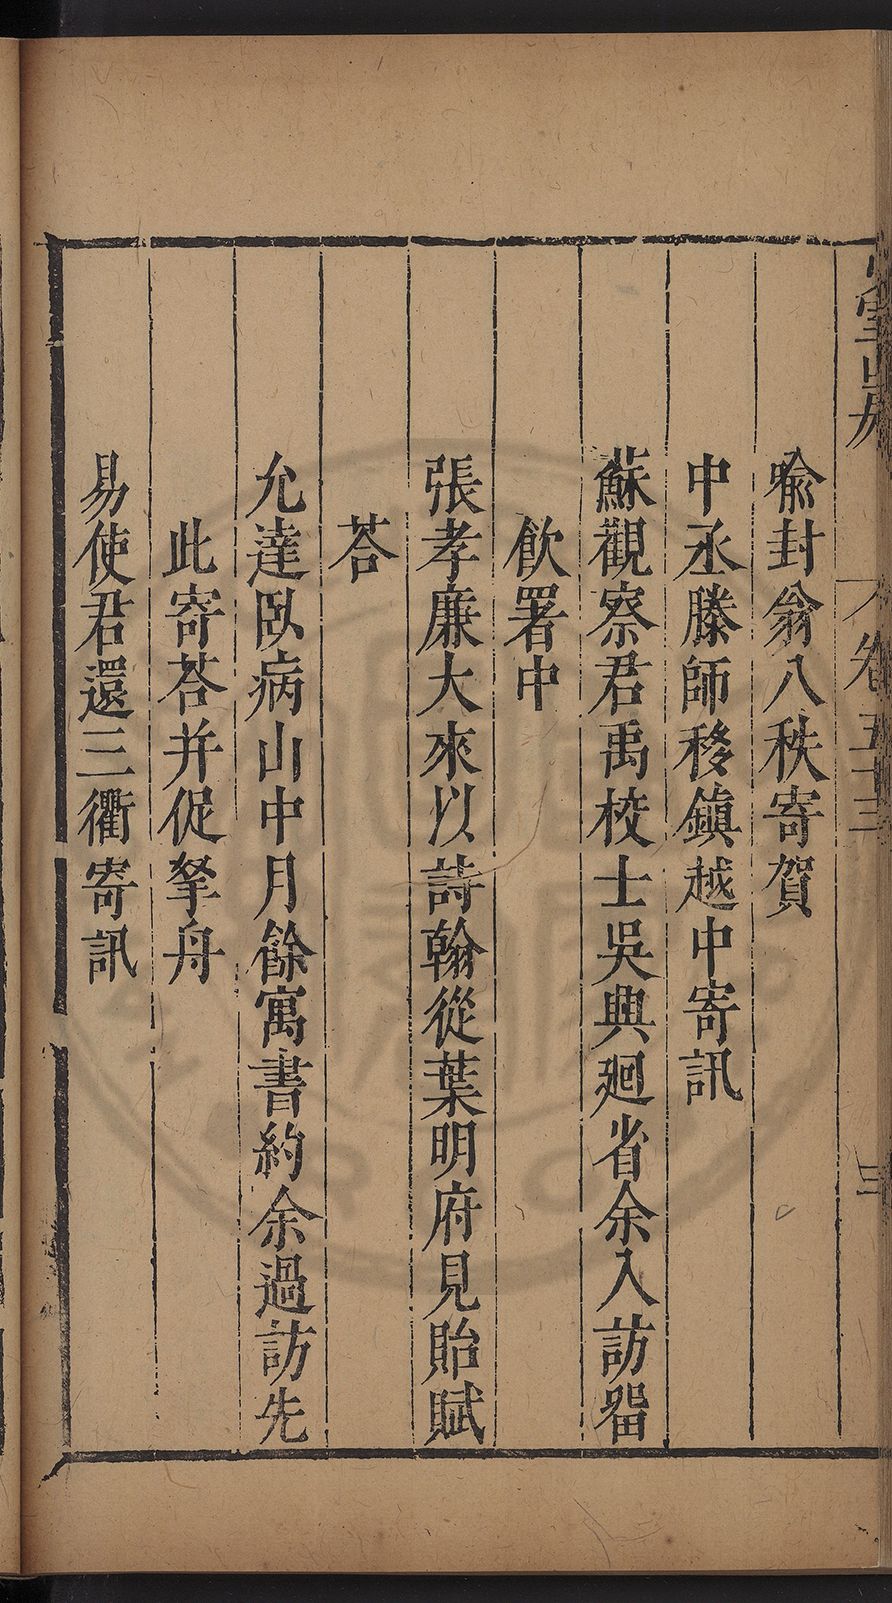 喩封翁八秩寄賀
中丞滕師移鎮越中寄訊
蘇觀察君禹校士吳興廻省余入訪畱
飲署中
張孝廉大來以詩翰從葉明府見貽賦
荅
允達臥病山中月餘寓書約余過訪先
此寄荅并促拏舟
易使君還三衢寄訊
卷五十三
三